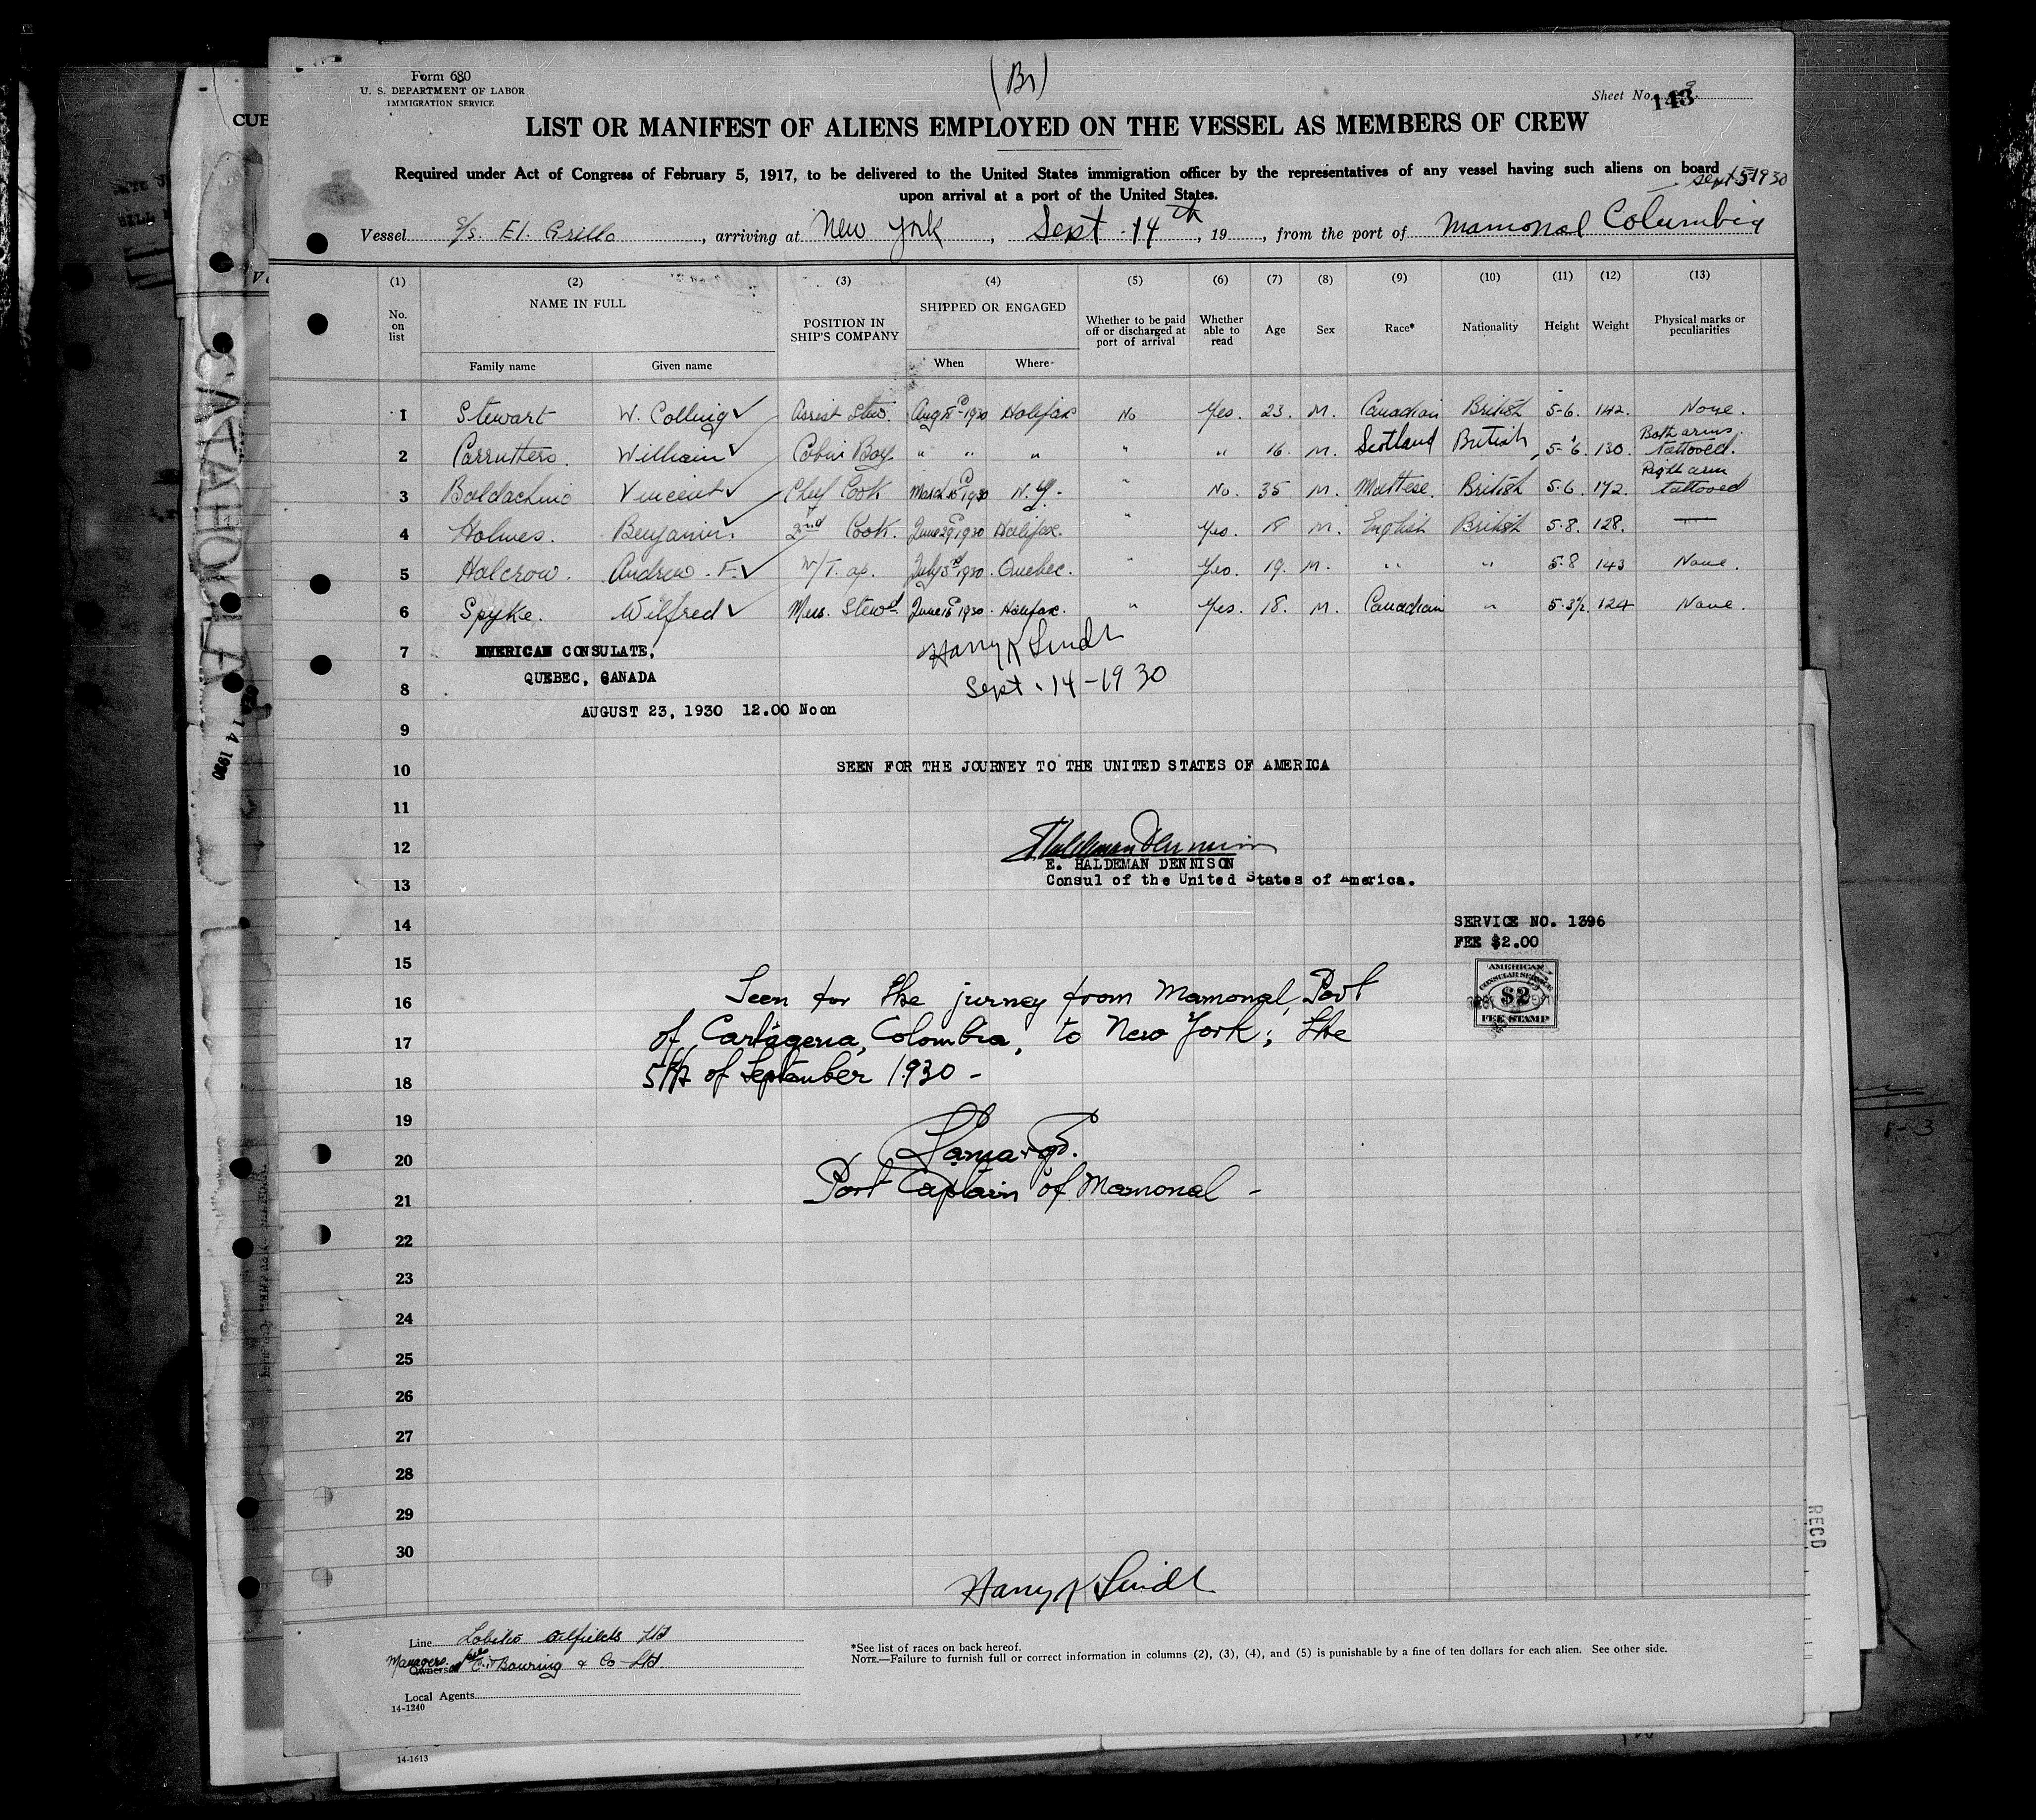 Form 680
U. S. DEPARTMENT OF LABOR
IMMIGRATION SERVICE
(Br)
Sheet No. 3
143
LIST OR MANIFEST OF ALIENS EMPLOYED ON THE VESSEL AS MEMBERS OF CREW
Required under Act of Congress of February 5, 1917, to be delivered to the United States immigration officer by the representatives of any vessel having such aliens on board
upon arrival at a port of the United States.
Sept 5 1930
Vessel S/s. El. Grillo, arriving at New York, Sept. 14th, 19, from the port of Mamonal Columbia
(1) (2) (3) (4) (5) (6) (7) (8) (9) (10) (11) (12) (13)
No. on list NAME IN FULL Family name Given name POSITION IN SHIP'S COMPANY SHIPPED OR ENGAGED When Where Whether to be paid off or discharged at port of arrival Whether able to read Age Sex Race* Nationality Height Weight Physical marks or peculiarities
1 Stewart W. Colling Assist Stew. Aug 1930 Halifax No Yes. 23. M. Canadian British 5-6. 142. None.
2 Carruthers. William Cabin Boy. " " " " " 16. M. Scotland British, 5-6. 130. Both arms. tattooed.
3 Baldachino Vincent Chief Cook March 1930 N.Y. " No. 35 M. Maltese. British 5.6. 172. Right arm tattooed
4 Holmes. Benjamin. 2nd Cook. June 29 1930 Halifax. " Yes. 18 M. English British 5.8. 128. —
5 Halcrow. Andrew. F. W/T. op. July 3rd 1930. Quebec. " Yes. 19. M. " " 5.8 143 None.
6 Spyke. Wilfred Mess. Stewd. June 1930. Halifax. " Yes. 18. M. Canadian " 5.3½. 124 None.
7 AMERICAN CONSULATE,
Harry K Lindt
QUEBEC, CANADA
8 Sept. 14-1930
AUGUST 23, 1930 12.00 Noon
9
10 SEEN FOR THE JOURNEY TO THE UNITED STATES OF AMERICA
11
12 E Haldeman Dennison
E. HALDEMAN DENNISON
13 Consul of the United States of America.
14 SERVICE NO. 1396
FEE $2.00
15
AMERICAN
CONSULAR SERVICE
$2
FEE STAMP
16 Seen for the jurney from Mamonal, Port
17 of Cartagena, Colombia, to New York; the
18 5th of september 1930 -
19
20
21 Port Captain of Mamonal -
22
23
24
25
26
27
28
29
30
Harry K Lindt
Line Lobitos Oilfields Ltd
Managers. Owners C.T. Bowring & Co Ltd.
Local Agents
14-1240
*See list of races on back hereof.
NOTE.—Failure to furnish full or correct information in columns (2), (3), (4), and (5) is punishable by a fine of ten dollars for each alien. See other side.
14-1613
CUB
CATAHOULA
14 1930
RECD
1-3